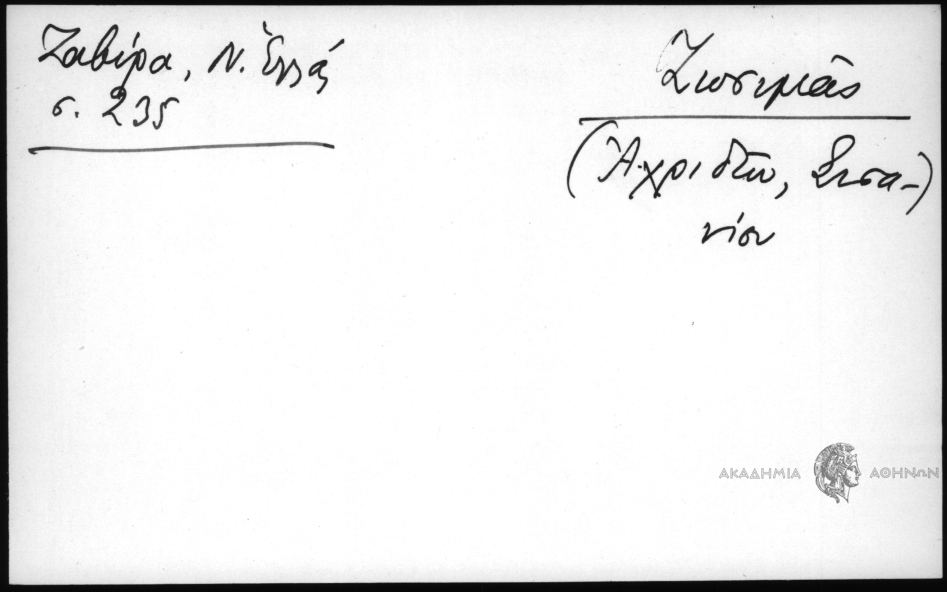 Ζαβίρα, Ν. Ἑλλάς
σ. 235
Ζωσιμᾶς
(Ἀχριδῶν, Σισα-)
νίου
ΑΚΑΔΗΜΙΑ ΑΘΗΝΩΝ